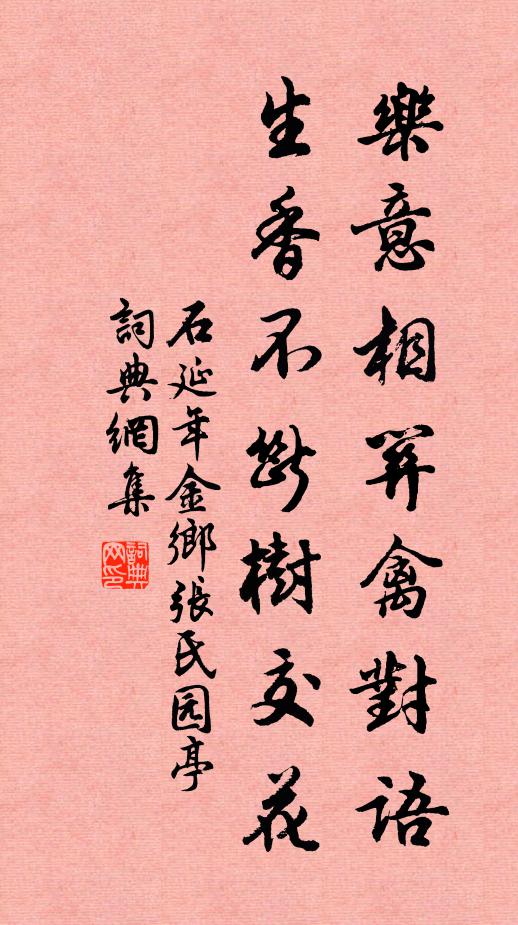 樂意相關禽對語
生香不斷樹交花
石延年金鄉張氏园亭
詞典網集
詞典网印